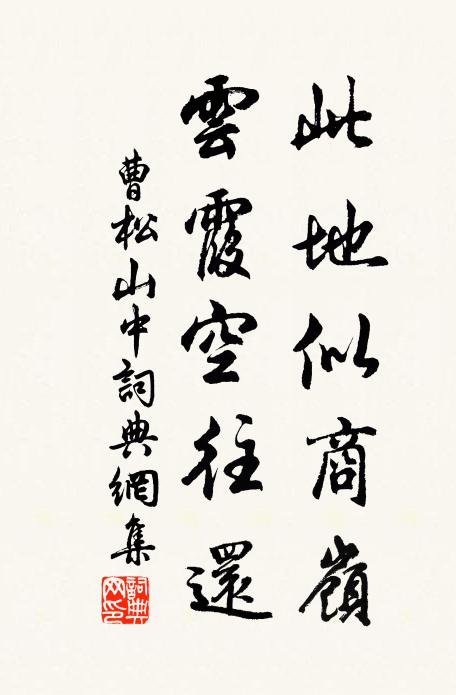 此地似商嶺
雲霞空往還
曹松山中詞典網集
詞典网印